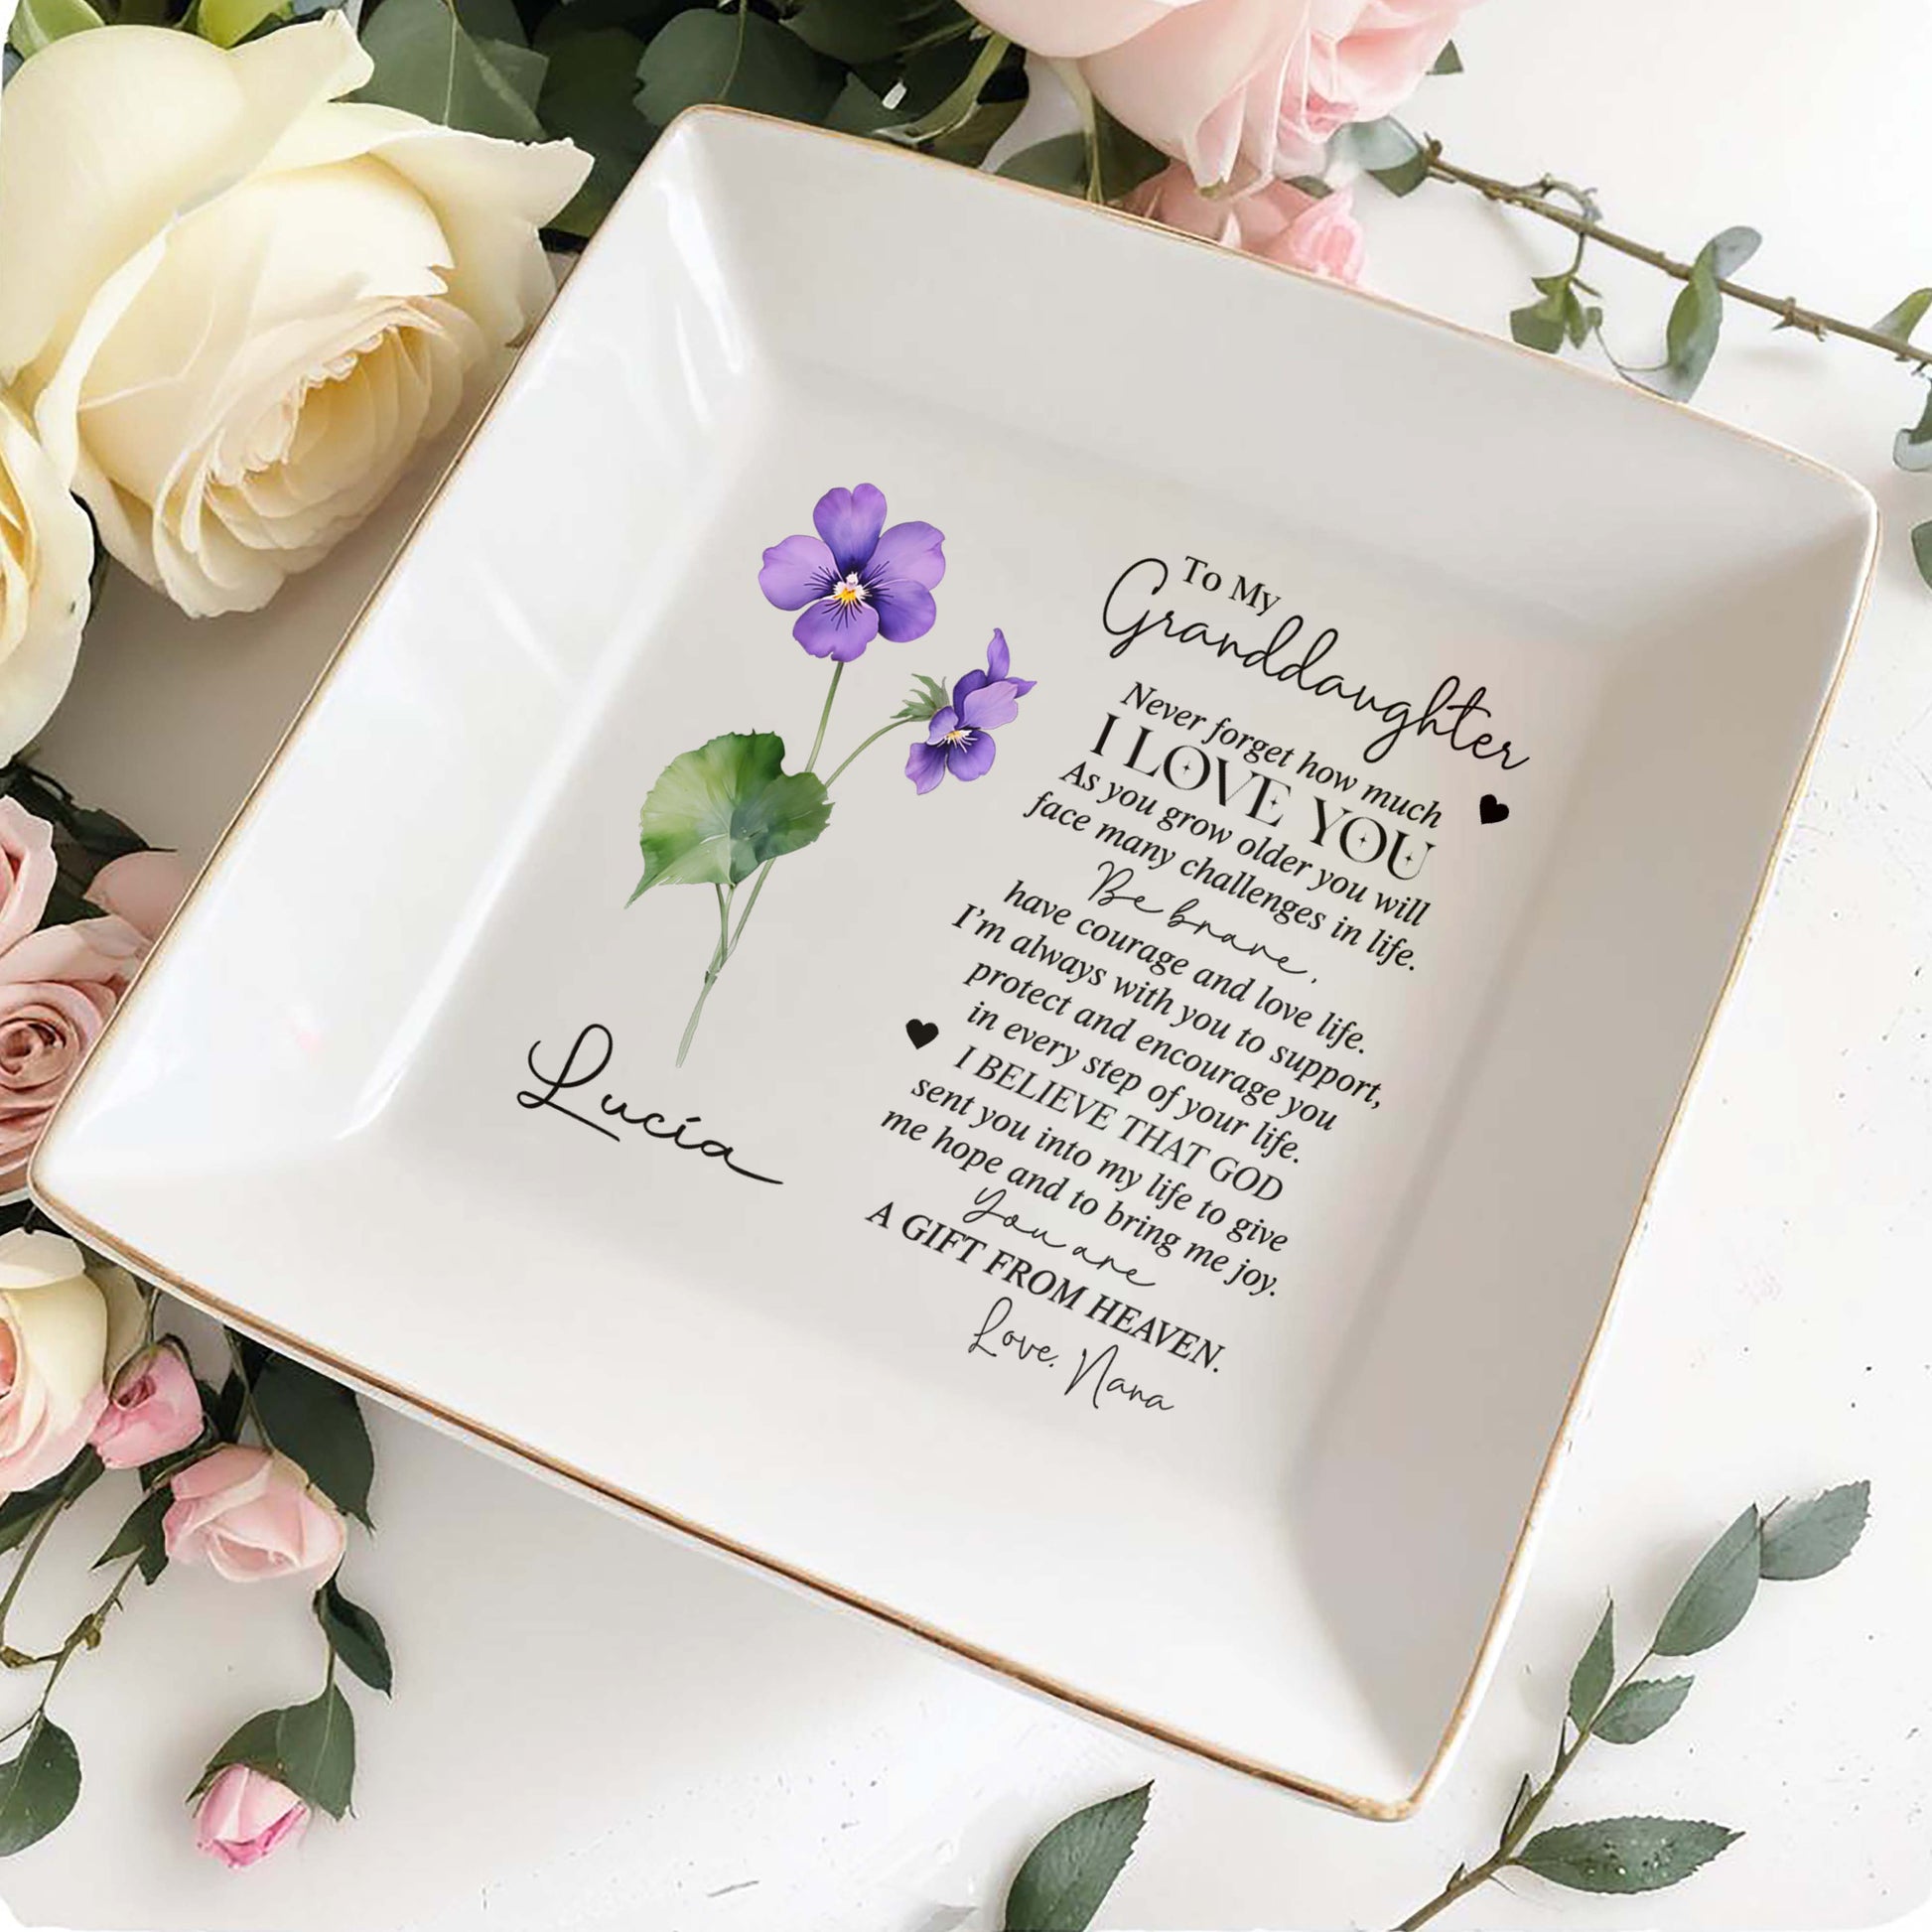 To My
Granddaughter
Never forget how much
I LOVE YOU
As you grow older you will
face many challenges in life.
Be brave,
have courage and love life.
I'm always with you to support,
protect and encourage you
in every step of your life.
I BELIEVE THAT GOD
sent you into my life to give
me hope and to bring me joy.
You are
A GIFT FROM HEAVEN.
Love, Nana
Lucía